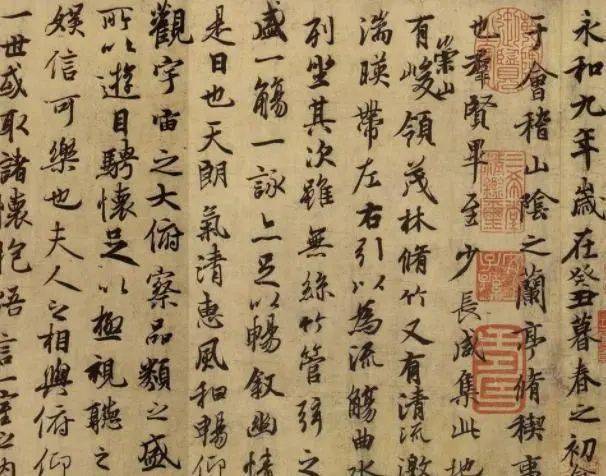 永和九年歲在癸丑暮春之初會
于會稽山陰之蘭亭脩稧事
也羣賢畢至少長咸集此地
有崇山峻領茂林脩竹又有清流激
湍暎帶左右引以為流觴曲水
列坐其次雖無絲竹管弦之
盛一觴一詠亦足以暢敘幽情
是日也天朗氣清惠風和暢仰
觀宇宙之大俯察品類之盛
所以遊目騁懷足以極視聽之
娛信可樂也夫人之相與俯仰
一世或取諸懷抱悟言一室之內
三希堂精鑑璽
宜子孫